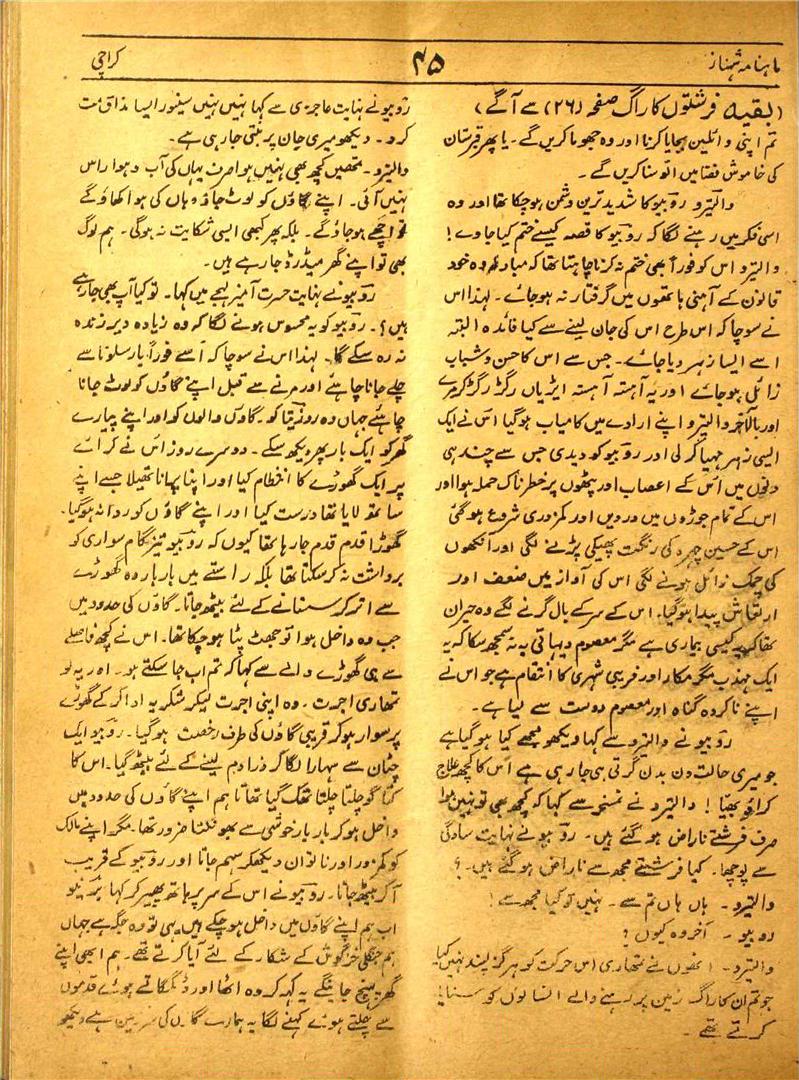 ماہنامہ شہناز
۴۵
کراچی
(بقیہ فرشتوں کا راگ صفحہ (۲۶) سے آگے)
تم اپنی وائلین بجایا کرنا اور وہ جھوما کریں گے۔ یا پھر قبرستان
کی خاموش فضا میں اتو سنا کریں گے۔
والتیرو روبیو کا شدید ترین دشمن ہو چکا تھا اور وہ
اسی فکر میں رہنے لگا کہ روبیو کا قصہ کیسے ختم کیا جاوے!
والتیرو اس کو فوراً بھی ختم نہ کرنا چاہتا تھا کہ مبادا وہ خود
قانون کے آہنی ہاتھوں میں گرفتار نہ ہو جائے۔ لہذا اس
نے سوچا کہ اس طرح اس کی جان لینے سے کیا فائدہ البتہ
اسے ایسا زہر دیا جائے۔ جس سے اس کا حسن و شباب
زائل ہو جائے اور یہ آہستہ آہستہ ایڑیاں رگڑ رگڑ کر مرے
اور بالآخر والتیرو اپنے ارادے میں کامیاب ہوگیا اس نے ایک
ایسی زہر مہیا کر لی اور روبیو کو دیدی جس سے چند ہی
دنوں میں اس کے اعصاب اور پٹھوں پر خطرناک حملہ ہوا اور
اس کے تمام جوڑوں میں درد یں اور کمزوری شروع ہو گئی
اس کے حسین چہرہ کی رنگت پھیکی پڑنے لگی اور آنکھوں
کی چمک زائل ہونے لگی اس کی آواز میں ضعف اور
ارتعاش پیدا ہوگیا۔ اس کے سر کے بال گرنے لگے وہ حیران
تھا کہ یہ کیسی بیماری ہے مگر معصوم دیہاتی یہ نہ سمجھ سکا کہ یہ
ایک مہذب مگر مکار اور فریبی شہری کا انتقام ہے جو اس نے
اپنے ناکردہ گناہ اور معصوم دوست سے لیا ہے۔
روبیو نے والتیرو سے کہا دیکھو مجھے کیا ہو گیا ہے
جو میری حالت دن بدن گرتی ہی جا رہی ہے اس کا کچھ علاج
کراؤ بھیّا! والتیرو نے تمسخر سے کہا کہ کچھ بھی تو نہیں ہوا
صرف فرشتے ناراض ہو گئے ہیں۔ روبیو نے نہایت سادگی
سے پوچھا۔ کیا فرشتے مجھ سے ناراض ہو گئے ہیں۔؟
والتیرو۔ ہاں ہاں تم سے۔ نہیں تو کیا مجھ سے!
روبیو ۔ آخر وہ کیوں؟
والتیرو۔ انھوں نے تمھاری اس حرکت کو ہرگز پسند نہیں کیا
جو تم ان کا راگ زمین پر رہنے والے انسانوں کو سنایا
کرتے تھے ۔
روبیو نے نہایت عاجزی سے کہا نہیں نہیں سینور ایسا مذاق مت
کرو۔ دیکھو میری جان پر بنتی جا رہی ہے۔
والتیرو۔ تمھیں کچھ بھی نہیں ہوا صرف یہاں کی آب و ہوا راس
نہیں آئی۔ اپنے گاؤں کو لوٹ جاؤ وہاں کی ہوا کھاؤ گے
تو اچھے ہو جاؤ گے۔ بلکہ پھر کبھی ایسی شکایت نہ ہوگی۔ ہم لوگ
بھی تو اپنے گھر میڈرڈ جا رہے ہیں۔
روبیو نے نہایت حسرت آمیز لہجے میں کہا۔ تو کیا آپ بھی جا رہے
ہیں؟۔ روبیو کو یہ محسوس ہونے لگا کہ وہ زیادہ دیر زندہ
نہ رہ سکے گا۔ لہذا اس نے سوچا کہ اسے فوراً بارسلونا سے
چلے جانا چاہئے اور مرنے سے قبل اپنے گاؤں کو لوٹ جانا
چاہئے جہاں وہ روزیتا کو۔ گاؤں والوں کو اور اپنے پیارے
گھر کو ایک بار پھر دیکھ سکے۔ دوسرے روز اس نے کرائے
پر ایک گھوڑے کا انتظام کیا اور اپنا پرانا تھیلا جسے اپنے
ساتھ لایا تھا درست کیا اور اپنے گاؤں کو روانہ ہوگیا۔
گھوڑا قدم قدم جا رہا تھا کیوں کہ روبیو تیز گام سواری کو
برداشت نہ کر سکتا تھا بلکہ راستے میں بار بار وہ گھوڑے
سے اتر کر سستانے کے لئے بیٹھ جاتا۔ گاؤں کی حدود میں
جب وہ داخل ہوا تو جھٹ پٹا ہو چکا تھا۔ اس نے کچھ فاصلے
سے ہی گھوڑے والے سے کہا کہ تم اب جا سکتے ہو۔ اور یہ لو
تمھاری اجرت۔ وہ اپنی اجرت لیکر شکریہ ادا کر کے گھوڑے
پر سوار ہو کر قریبی گاؤں کی طرف رخصت ہو گیا۔ روبیو ایک
چٹان سے سہارا لگا کر ذرا دم لینے کے لئے بیٹھ گیا۔ اس کا
کتا گو چلتا چلتا تھک گیا تھا تاہم اپنے گاؤں کی حدود میں
داخل ہو کر بار بار خوشی سے بھونکتا ضرور تھا۔ مگر اپنے مالک
کو کمزور اور ناتوان دیکھکر سہم جاتا اور روبیو کے قریب
آکر بیٹھ جاتا۔ روبیو نے اس کے سر پر ہاتھ پھیر کر کہا
اب ہم اپنے گاؤں میں داخل ہو چکے ہیں یہی تو وہ جگہ ہے جہاں
ہم جنگلی خرگوش کے شکار کے لئے آیا کرتے تھے۔ ہم ابھی اپنے
گھر پہنچ جائینگے یہ کہہ کر وہ اٹھا اور ڈگمگاتے ہوئے قدموں
سے چلتے ہوئے کہنے لگا یہ ہمارے گاؤں کی سرزمین ہے دیکھو